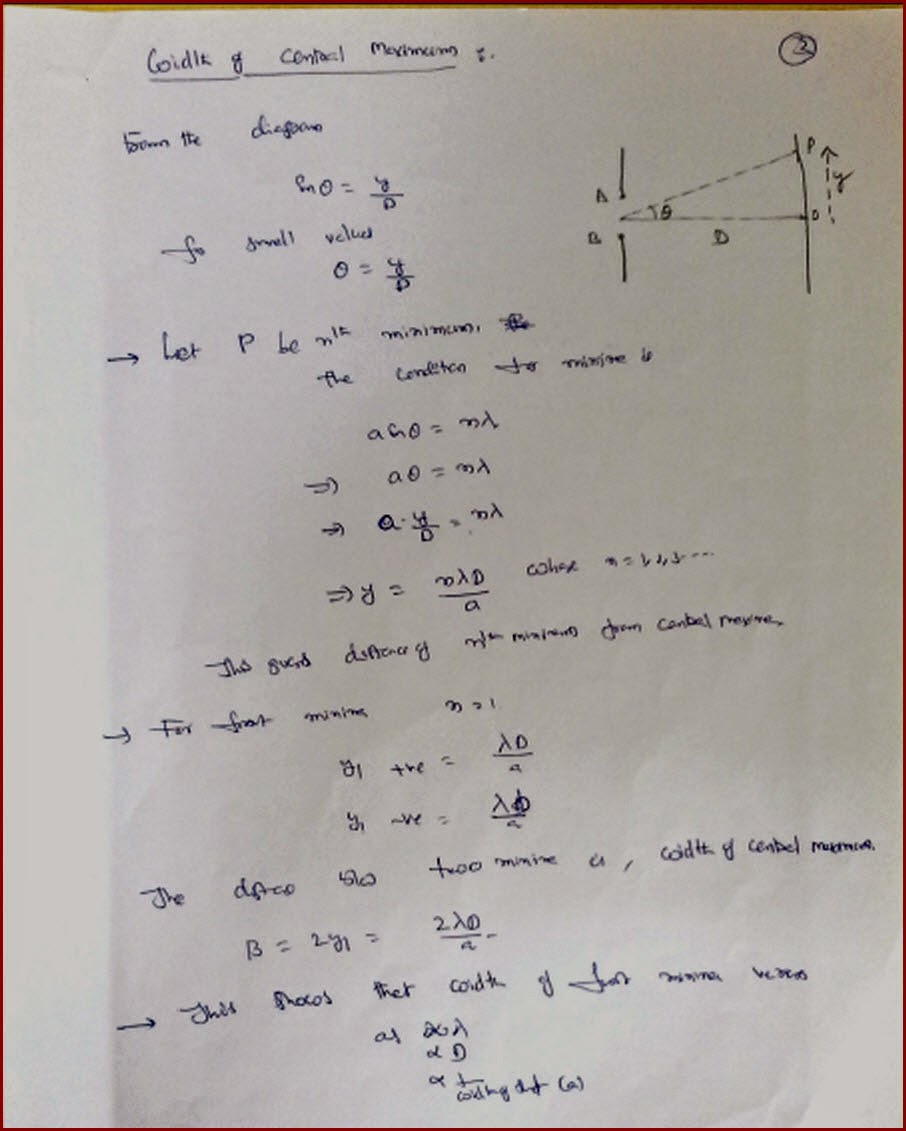 Width of Central Maximum :.
②
From the diagram
Sin θ = y/D
for small values
θ = y/D
A
B
θ
D
P
O
y
→ Let P be nth minimum.
the condition for minima is
a Sin θ = nλ
⇒ aθ = nλ
⇒ a · y/D = nλ
⇒ y = nλD/a where n = 1,2,3 ....
This gives distance of nth minimum from central maxima.
→ For first minima n = 1
y1 +ve = λD/a
y1 -ve = λD/a
The distance b/w two minima is, width of central maximum.
β = 2y1 = 2λD/a
→ This shows that width of first minima varies
as ∝ λ
∝ D
∝ 1/width of slit (a)